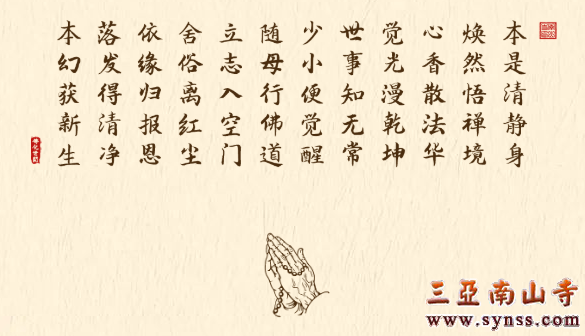 本是清静身
焕然悟禅境
心香散法华
觉光漫乾坤
世事知无常
少小便觉醒
随母行佛道
立志入空门
舍俗离红尘
依缘归报恩
落发得清净
本幻获新生
三亞南山寺
www.synss.com